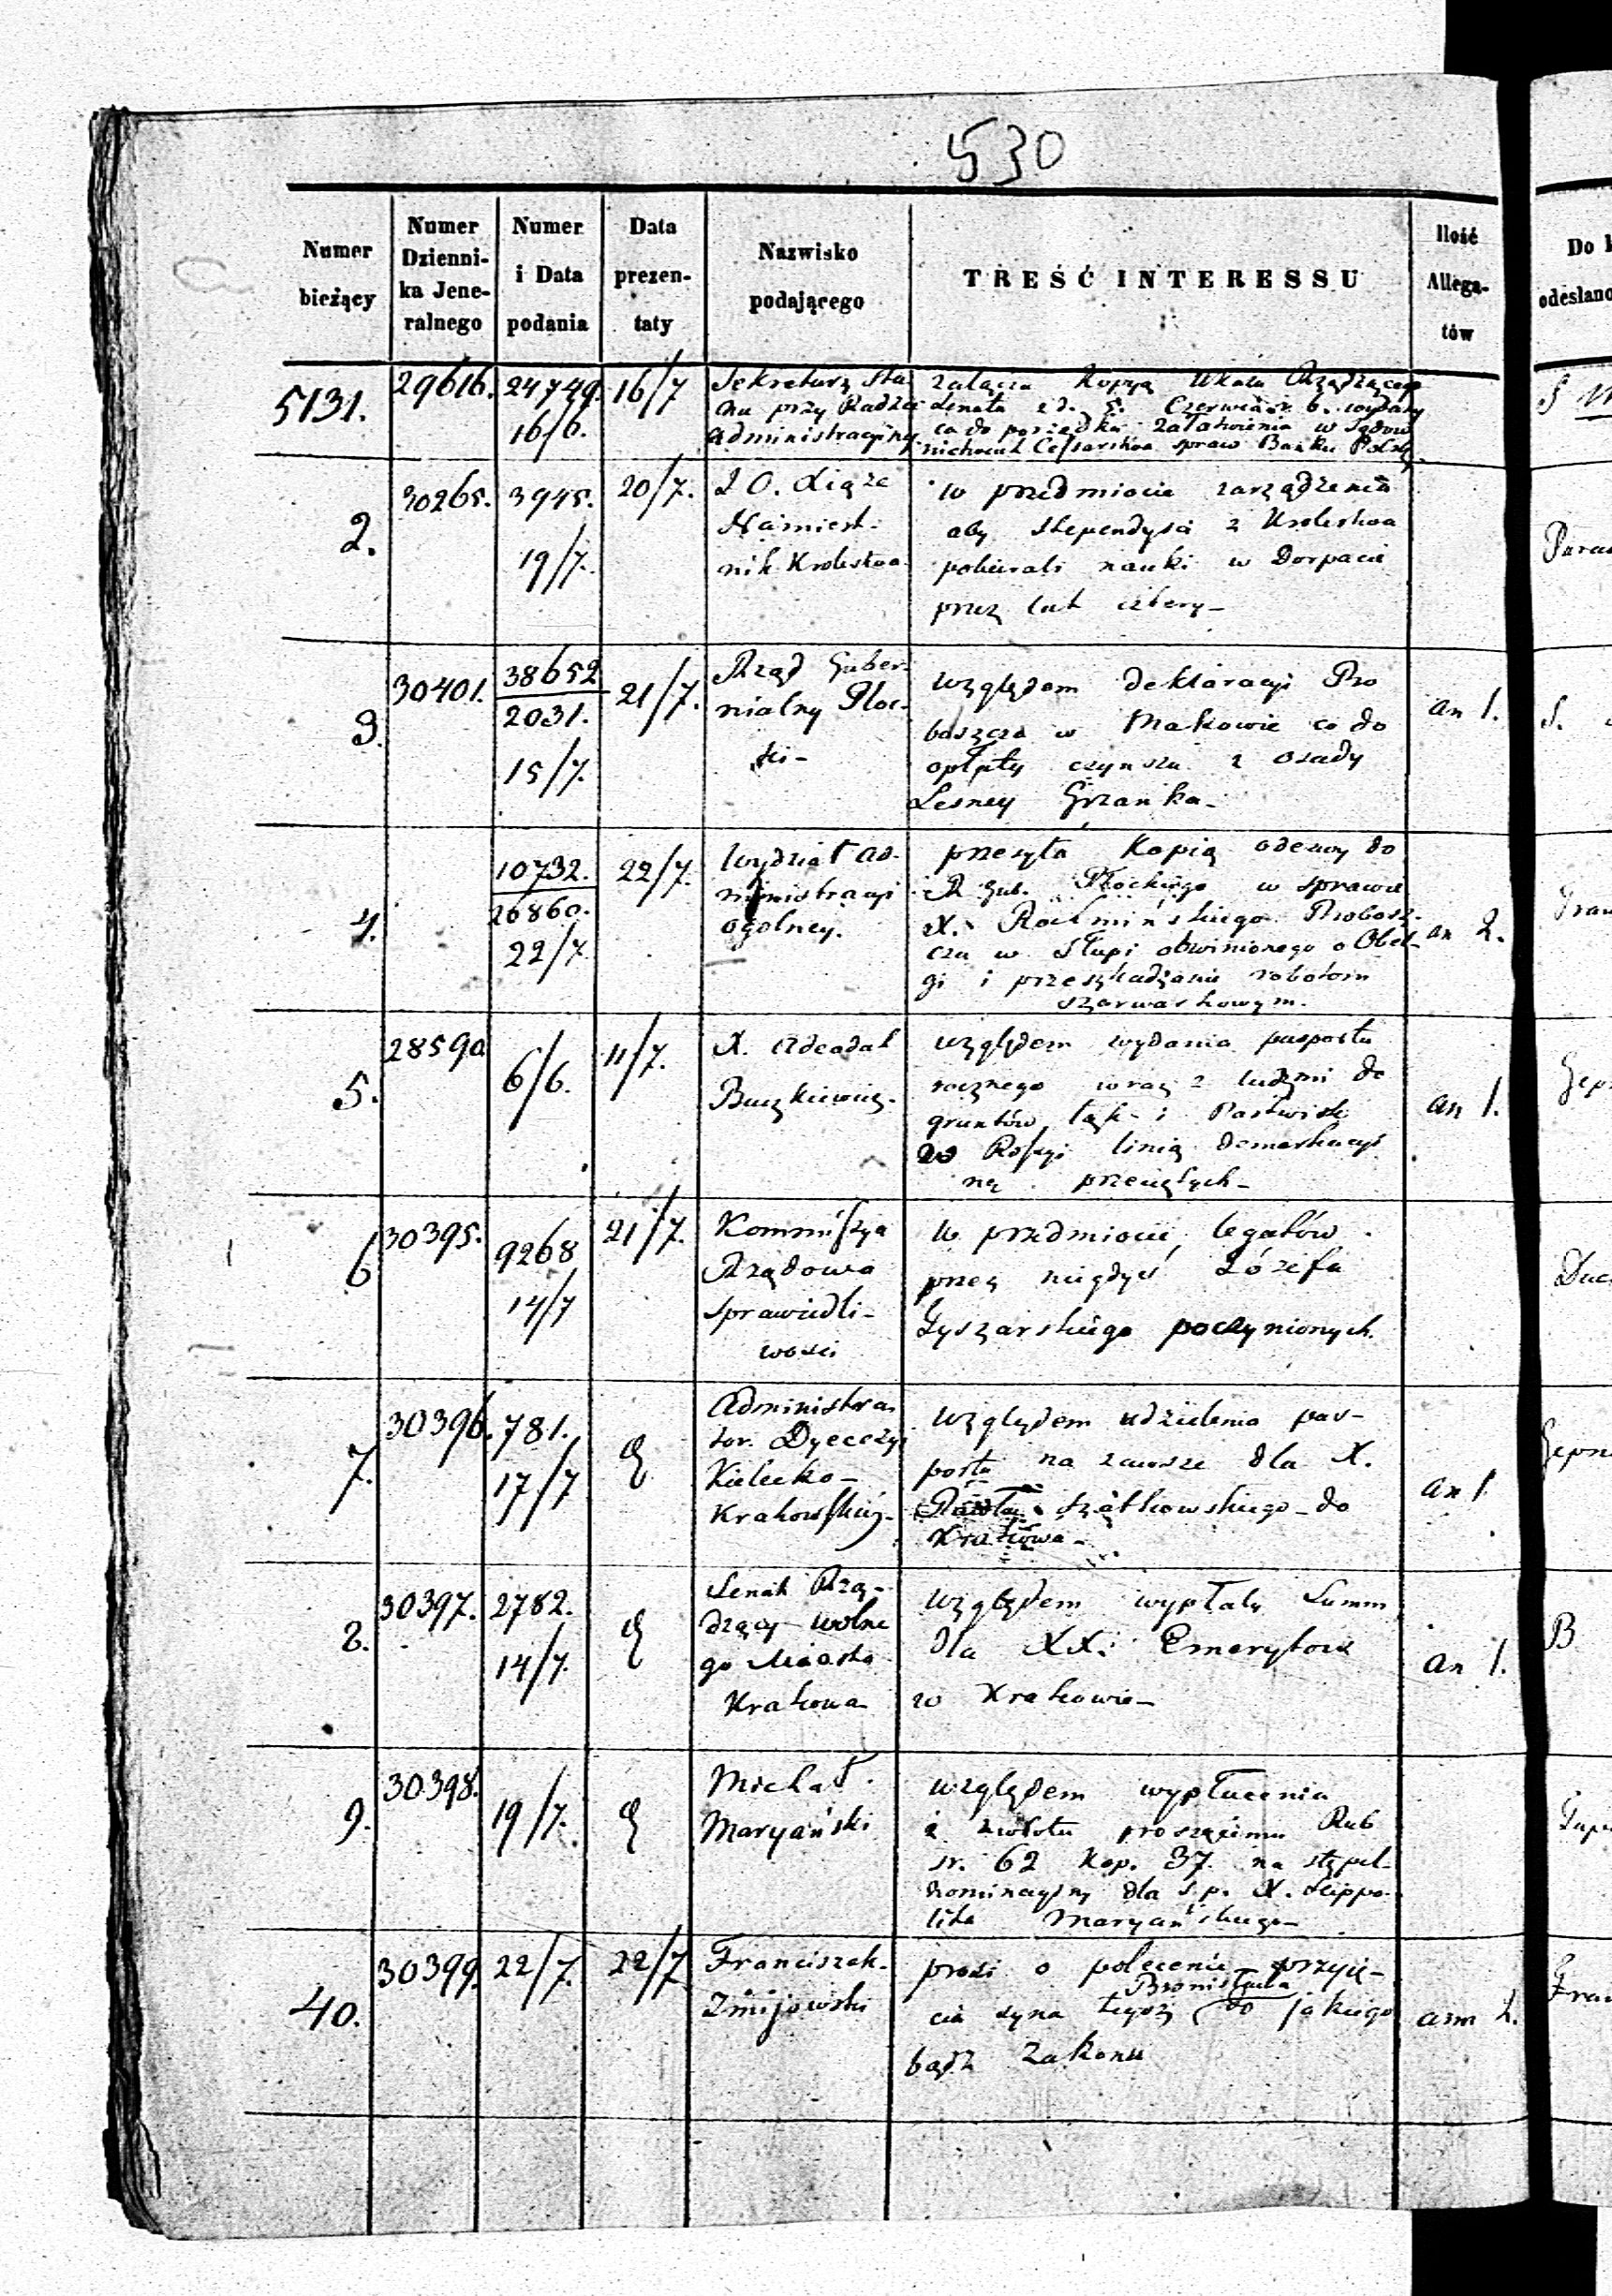 530
Numer bieżący
Numer Dzienni-ka Jene-ralnego
Numer i Data podania
Data prezen-taty
Nazwisko podającego
TREŚĆ INTERESSU
Ilość Allega-tów
Do
odesłano
5131.
29616.
24749.
16/6.
16/7
Sekretarz Sta
nu przy Radzie
administracyjney.
załącza kopyą Ukazu Rządzącego
Senatu z d. 5. Czerwca r. b. wydany
co do porządku załatwienia w Sądow
nictwach Cessarstwa spraw Banku Polsk.
2.
30265.
3945.
19/7.
20/7.
J O. Xiąże
Namiest-
nik Krolestwa
w przedmiocie zarządzenia
aby stypendyści z Krolestwa
pobierali nauki w Dorpacie
przez lat cztery-
3.
30401.
38652
2031.
15/7.
21/7.
Rząd Guber-
nialny Płoc-
ki-
względem deklaracyi Pro
boszcza w Makowie co do
opłaty czynszu z osady
Lesney Grzanka-
an 1.
S.
4.
10732.
26860.
22/7
22/7.
Wydział ad-
ministracyi
ogólney.
przesyła kopią odezwy do
R Gub. Płockiego w sprawie
X. Probosz-
cza w Słupi obwinionego o Obel-
gi i przeszkadzanie robotom
szarwarkowym.
an 2.
5.
28590
6/6.
11/7.
X. Adeodat
Buczkiewicz.
względem wydania pasportu
rocznego wraz z ludzmi do
gruntów, łąk i Pastwisk
w Rossyi linią demarkacyi
ną przeciętych-
an 1.
6
30395.
9268
14/7
21/7.
Kommissya
Rządowa
Sprawiedli-
wości
w przedmiocie legatów
przez niegdyś Józefa
Łyszarskiego poczynionych.
7.
30396.
781.
17/7
Administra
tor Dyecezyi
Kielecko-
Krakowskiej-
względem udzielenia pas-
portu na zawsze dla X.
Pawła Szatkowskiego do
Krakowa-
an 1
8.
30397.
2782.
14/7.
Senat Rzą-
dzący wolne
go Miasta
Krakowa
względem wypłaty Summ
dla XX. Emerytow
w Krakowie-
an 1.
B
9.
30398.
19/7.
Michał
Maryański
względem wypłacenia
zwrotu proszącemu Rub
sr. 62 kop. 37. na stępel
nominacyjny dla ś.p. X. Hippo-
lita Maryańskiego-
40.
30399.
22/7.
22/7
Franciszek
Żmijowski
prosi o polecenie przyję-
Bronisława
cia syna tegoż do jakiego
bądź Zakonu
ann 2.